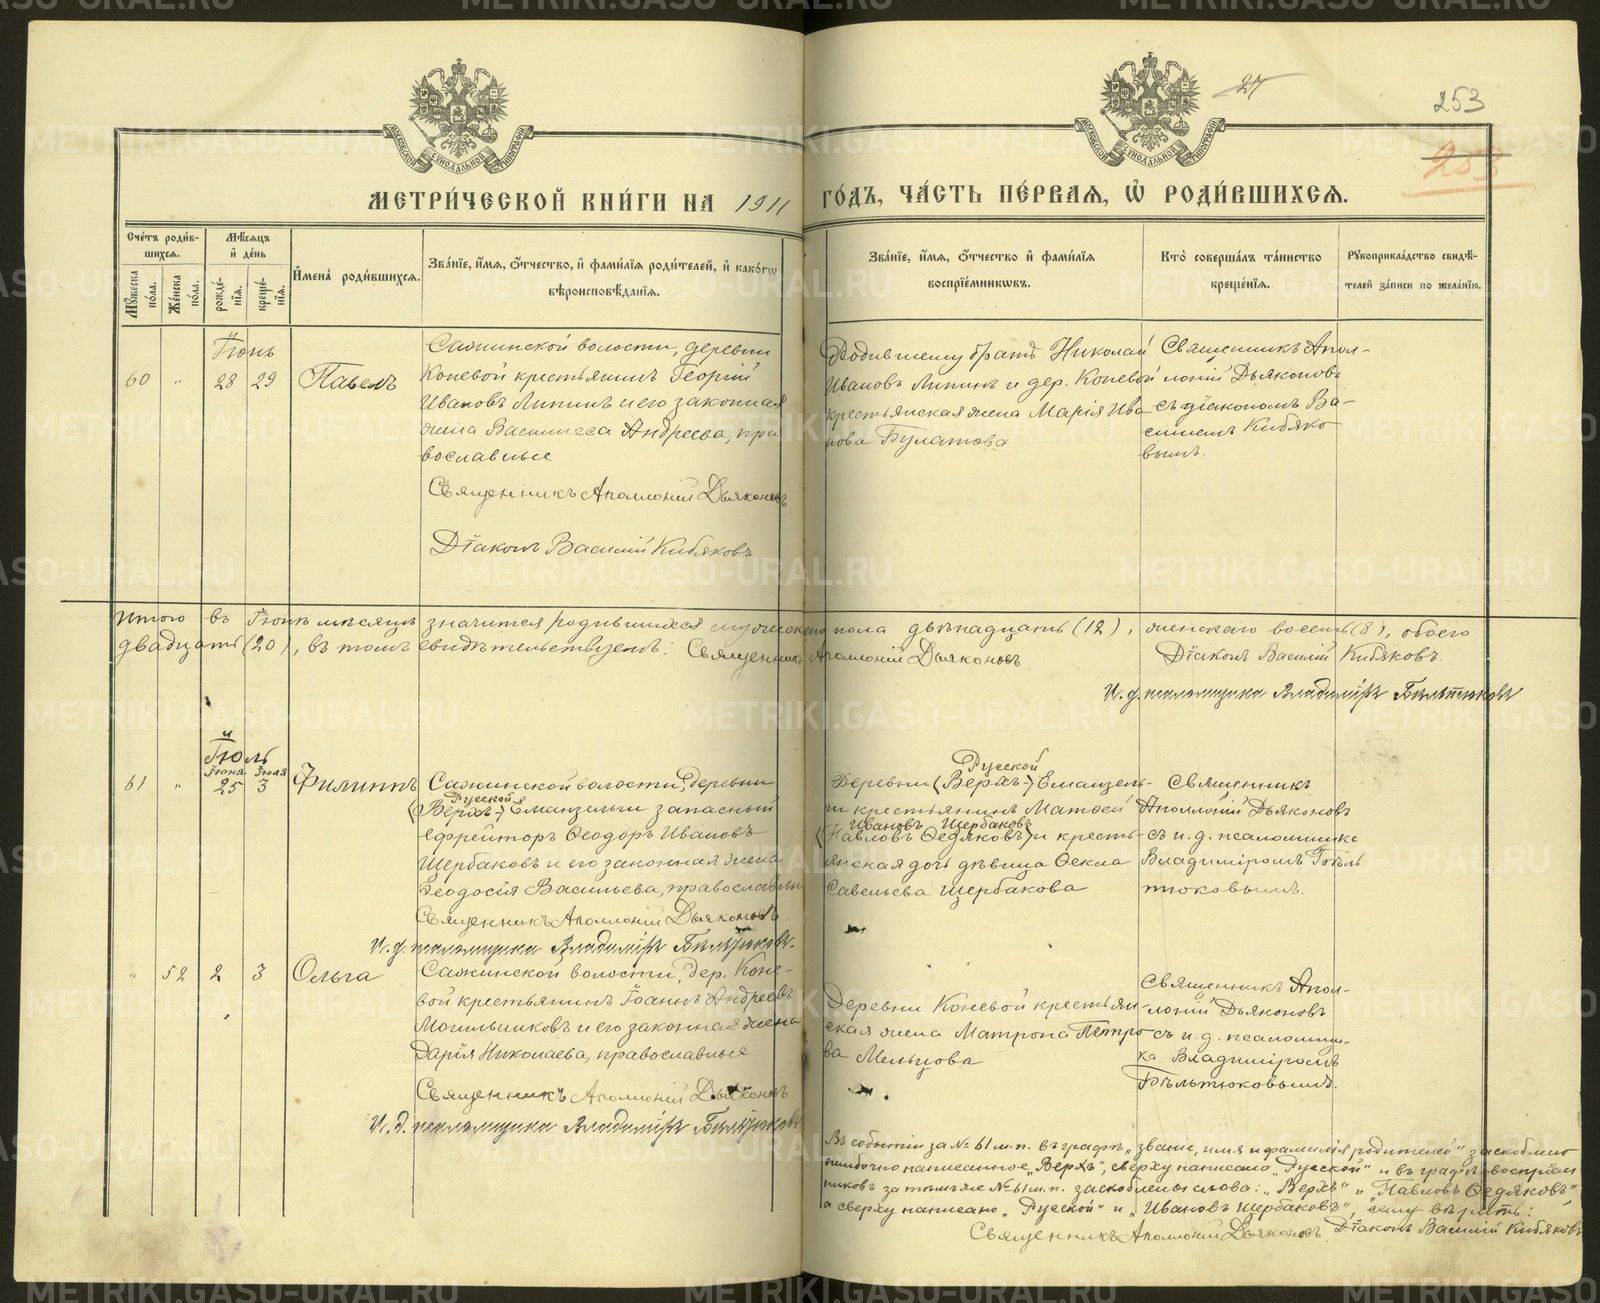 27
253
253
МОСКОВСКОЙ СѴНОДАЛЬНОЙ ТИПОГРАФІИ
МОСКОВСКОЙ СѴНОДАЛЬНОЙ ТИПОГРАФІИ
МЕТРИ́ЧЕСКОЙ КНИ́ГИ НА 1911 ГО́ДЪ, ЧА́СТЬ ПЕ́РВАЯ, Ѽ РОДИ́ВШИХСЯ.
Сче́тъ роди́вшихся.
Мѣ́сяцъ и҆ де́нь
И҆мена̀ роди́вшихся.
Зва́нїе, и҆́мя, ѻ҆́тчество, и҆ фами́лїя роди́телей, и҆ како́гѡ
вѣроисповѣ́данїя.
Зва́нїе, и҆́мя, ѻ҆́тчество и҆ фами́лїя
воспрїе́мникѡвъ.
Кто̀ соверша́лъ та́инство
креще́нїя.
Рꙋкоприкла́дство свидѣ́-
телей за́писи по жела́нїю.
Мꙋ́жеска по́ла.
Же́нска по́ла.
рожде́-нїя.
креще́-нїя.
Іюнь
60 " 28 29 Павелъ
Сажинской волости, деревни
Коневой крестьянинъ Георгій
Ивановъ Липинъ и его законная
жена Василисса Андреева, пра
вославные
Священникъ Аполлоній Дьяконовъ
Діаконъ Василій Кибяковъ
Родившему братъ Николай
Ивановъ Липинъ и дер. Коневой
крестьянская жена Марія Ива
нова Булатова
Священникъ Апол-
лоній Дьяконовъ
съ діакономъ Ва-
силіемъ Кибяко
вымъ.
Итого въ Іюнѣ мѣсяцѣ значится родившихся мужского пола двѣнадцать (12), женскаго восемь (8), обоего
двадцать (20), въ томъ свидѣтельствуемъ: Священникъ Аполлоній Дьяконовъ. Діаконъ Василій Кибяковъ.
И. д. псаломщика Владиміръ Бѣльтюковъ
Іюль
Іюня Іюля
61 " 25 3 Филиппъ
Сажинской волости, деревни
Русской
(Верхъ-) Еманзельги запасный
ефрейторъ Ѳеодоръ Ивановъ
Щербаковъ и его законная жена
Ѳеодосія Васильева, православные
Священникъ Аполлоній Дьяконовъ.
И. д. псаломщика Владиміръ Бѣльтюковъ.
Русской
Деревни (Верхъ-) Еманзель-
ги крестьянинъ Матѳей
Ивановъ Щербаковъ
(Павловъ Ѳедяковъ) и кресть-
янская дочь дѣвица Ѳекла
Савельева Щербакова
Священникъ
Аполлоній Дьяконовъ
съ и. д. псаломщика
Владиміромъ Бѣль
тюковымъ.
" 52 2 3 Ольга
Сажинской волости, дер. Коне-
вой крестьянинъ Іоаннъ Андреевъ
Могильниковъ и его законная жена
Дарія Николаева, православные
Священникъ Аполлоній Дьяконовъ.
И. д. псаломщика Владиміръ Бѣльтюковъ
Деревни Коневой крестьян-
ская жена Матрона Петро
ва Мельцова
Священникъ Апол-
лоній Дьяконовъ
съ и. д. псаломщи-
ка Владиміромъ
Бѣльтюковымъ.
Въ событіи за № 61 м. п. въ графѣ „званіе, имя и фамилія родителей" заскоблено
ошибочно написанное „Верхъ", сверху написано „Русской" и въ графѣ воспріем
никовъ за тѣмъ же № 61 м. п. заскоблено слова: „Верхъ" и „Павловъ Ѳедяковъ",
а сверху написано „Русской" и „Ивановъ Щербаковъ", сему вѣрить:
Священникъ Аполлоній Дьяконовъ. Діаконъ Василій Кибяковъ
METRIKI.GASO-URAL.RU